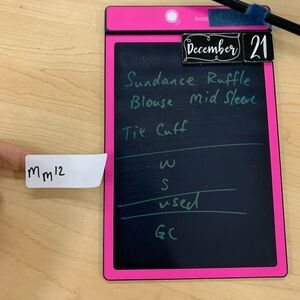 boog
December 21
Sundance Ruffle
Blouse Mid Sleeve
Tie Cuff
W
S
used
GC
MM12